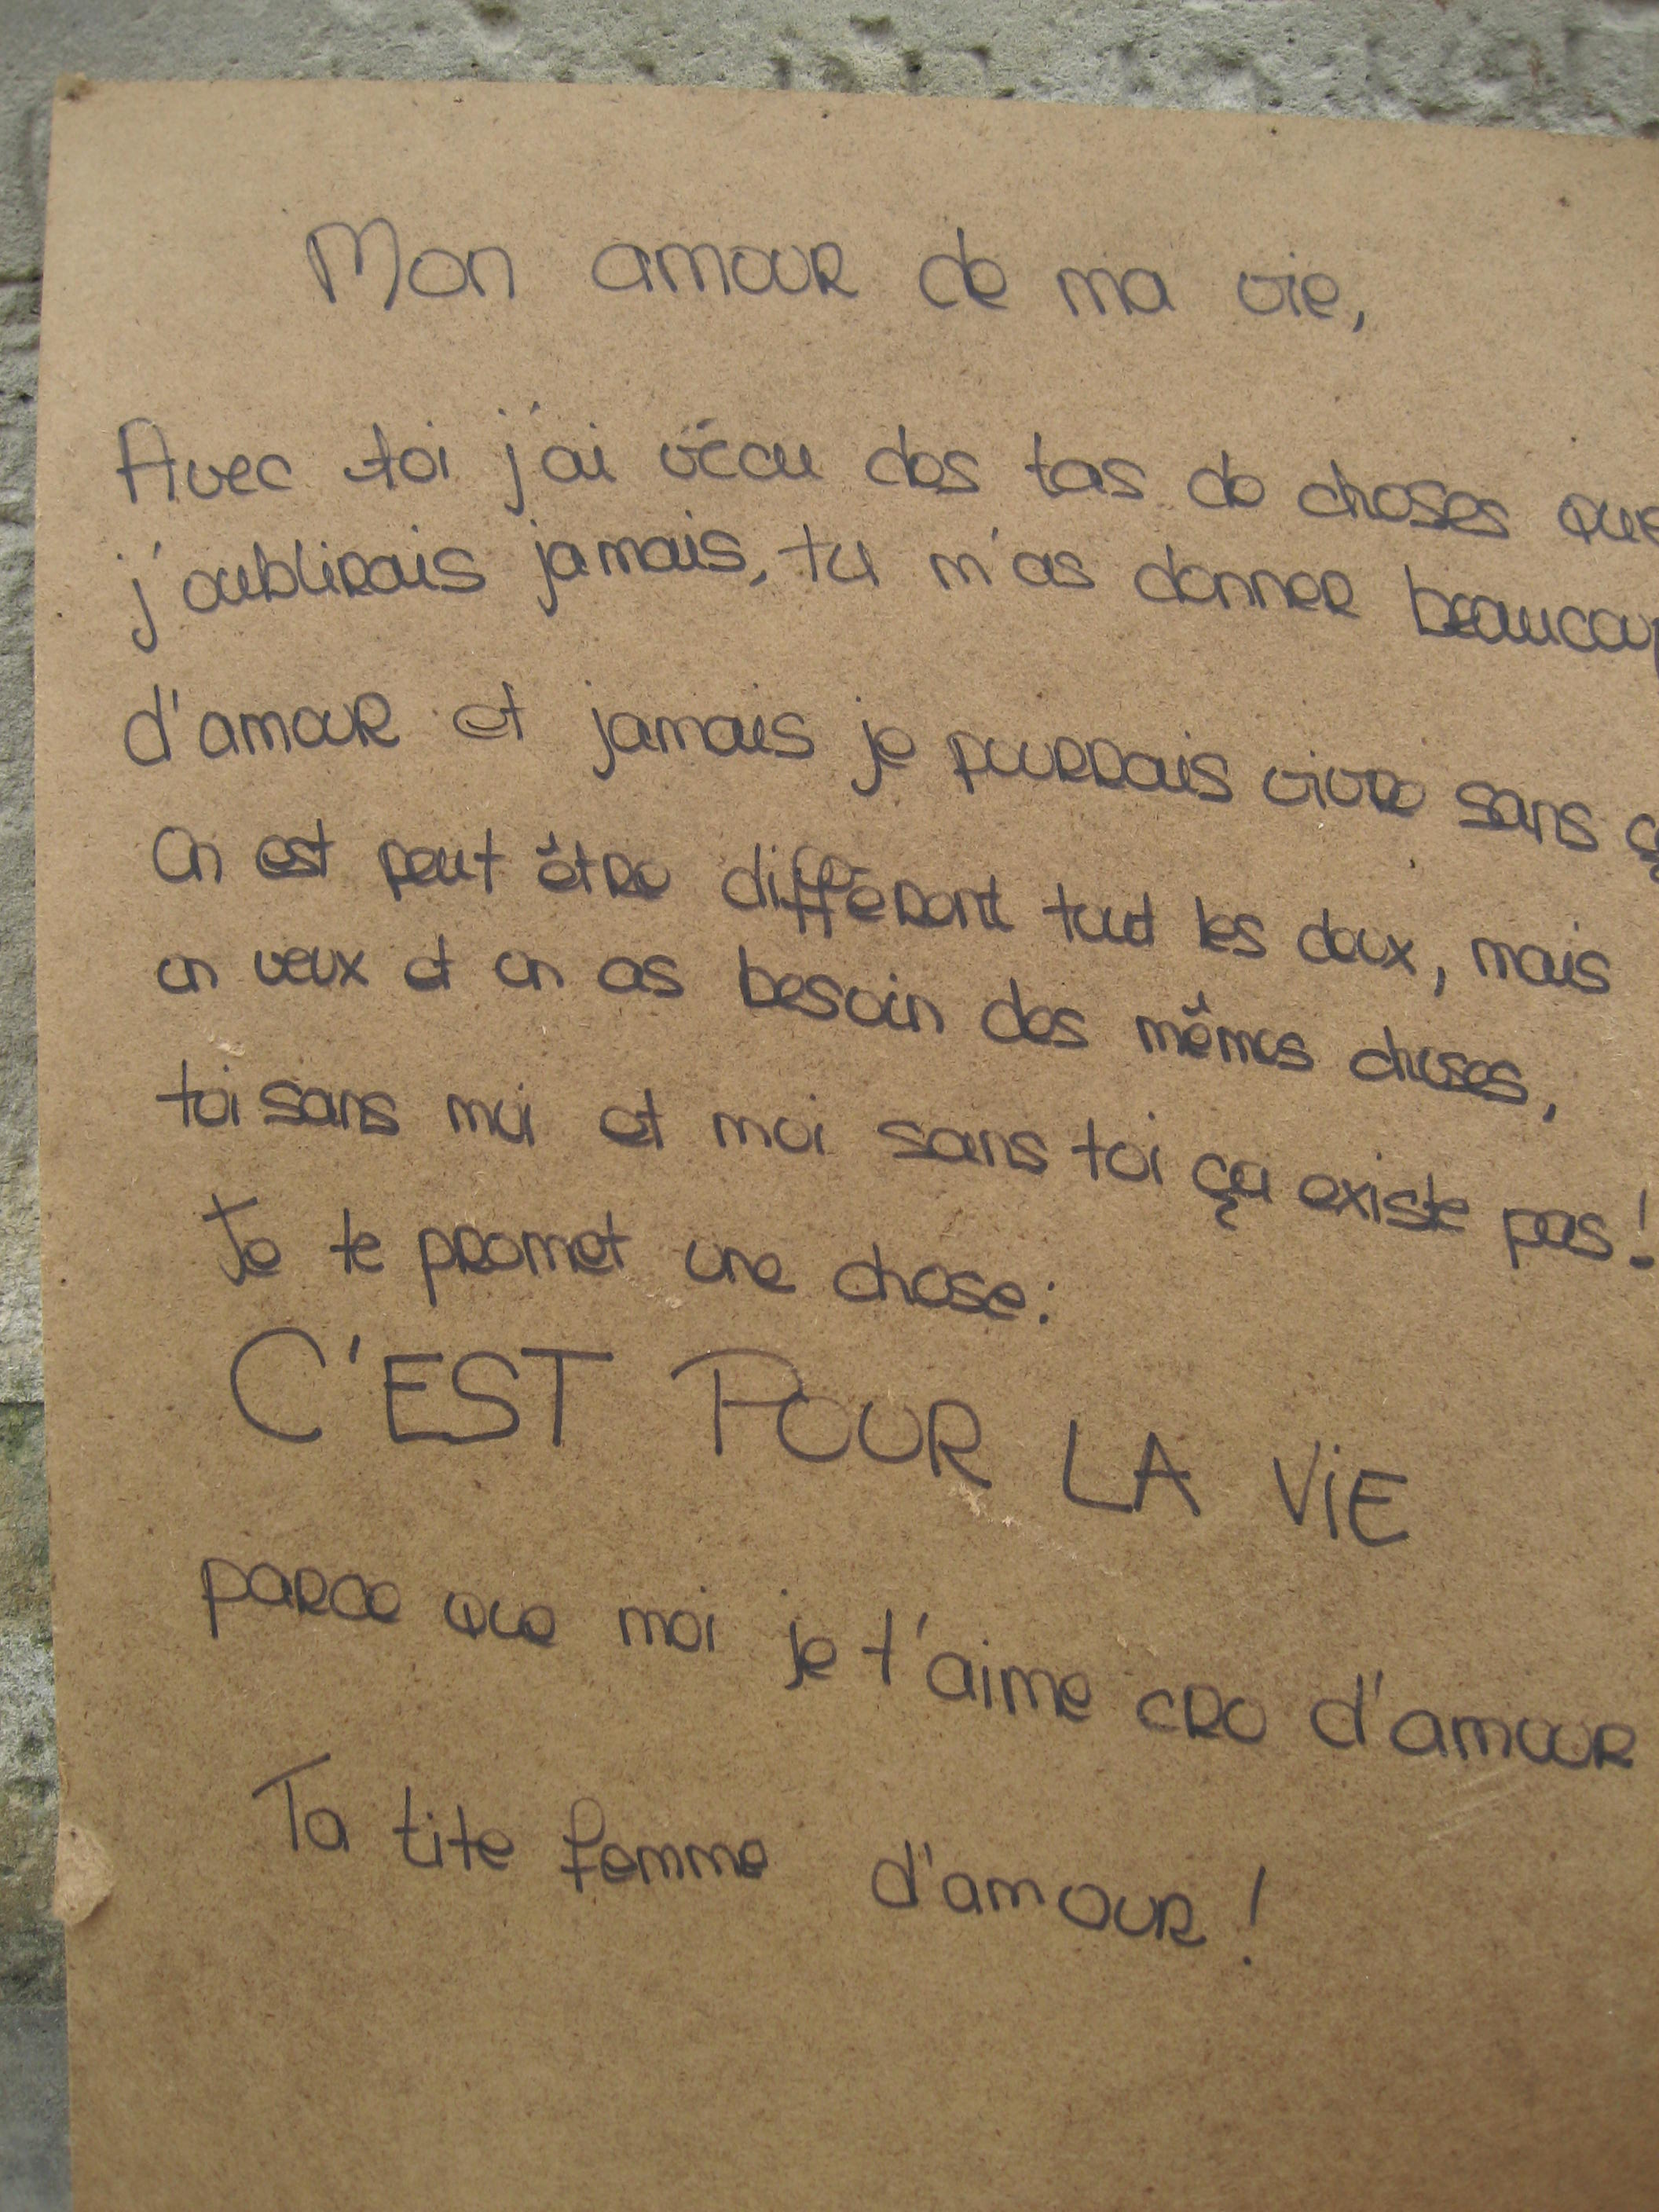 Mon amour de ma vie,
Avec toi j'ai vécu des tas de choses que
j'oublirais jamais, tu m'as donner beaucoup
d'amour et jamais je pourrais vivre sans ça
On est peut être différent tout les deux, mais
on veux et on as besoin des mêmes choses,
toi sans moi et moi sans toi ça existe pas!
Je te promet une chose:
C'EST POUR LA ViE
parce que moi je t'aime cro d'amour
Ta tite femme d'amour!